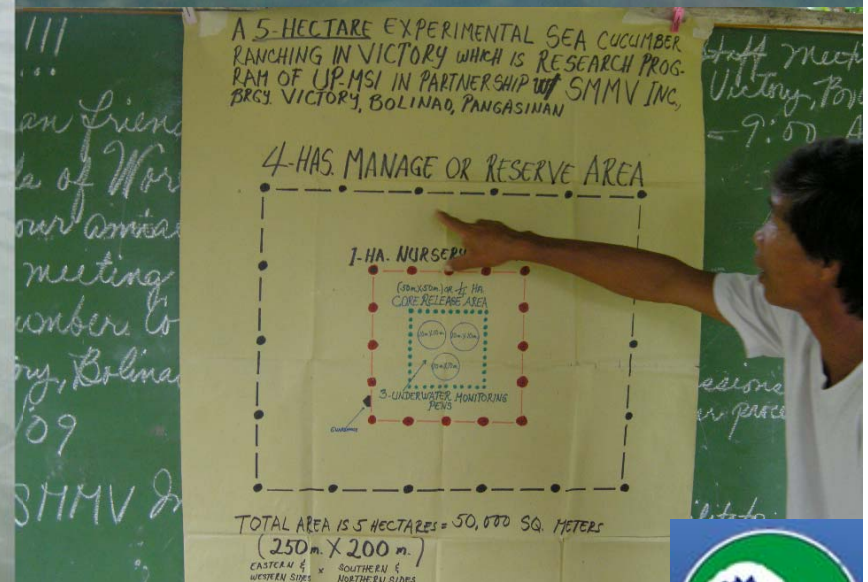 A 5-HECTARE EXPERIMENTAL SEA CUCUMBER
RANCHING IN VICTORY WHICH IS RESEARCH PROG-
RAM OF UP-MSI IN PARTNERSHIP w/ SMMV INC.,
BRGY. VICTORY, BOLINAO, PANGASINAN
4-HAS. MANAGE OR RESERVE AREA
1-HA. NURSERY
(50m X 50m) OR 1/4 HA
CORE RELEASE AREA
3-UNDERWATER MONITORING
PENS
TOTAL AREA IS 5 HECTARES = 50,000 SQ. METERS
(250m. X 200 m.)
EASTERN & WESTERN SIDES X SOUTHERN & NORTHERN SIDES
!!!
an friend
a of Wor
our
meeting
, Bolina
/09
SMMV In
Staff Meet
Victory, Bo
- 9:00 A